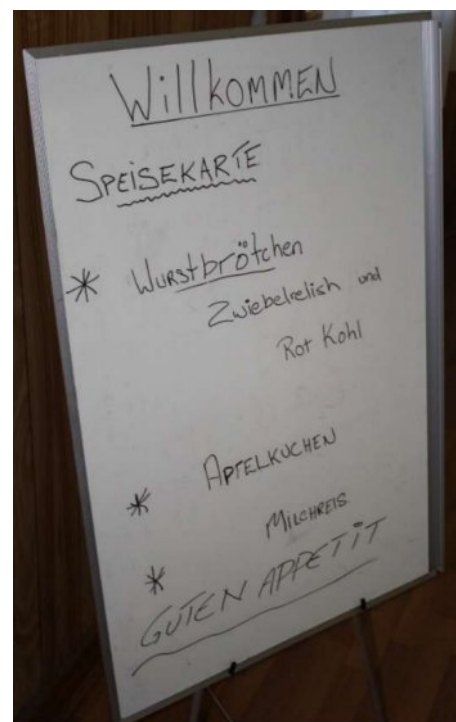 Willkommen
SPEISEKARTE
* Wurstbrötchen
Zwiebelrelish und
Rot Kohl
* APFELKUCHEN
MILCHREIS
*
GUTEN APPETIT